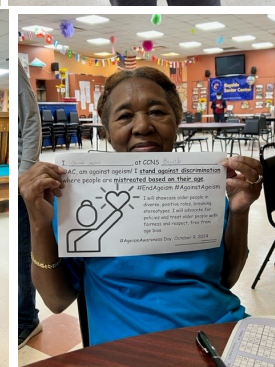 I, at CCNS
OAC, am against ageism! I stand against discrimination
where people are mistreated based on their age.
#EndAgeism #AgainstAgeism
I will showcase older people in
diverse, positive roles, breaking
stereotypes. I will advocate for
policies and treat older people with
fairness and respect, free from
age bias.
#AgeismAwarenessDay October 9, 2024
Senior Center